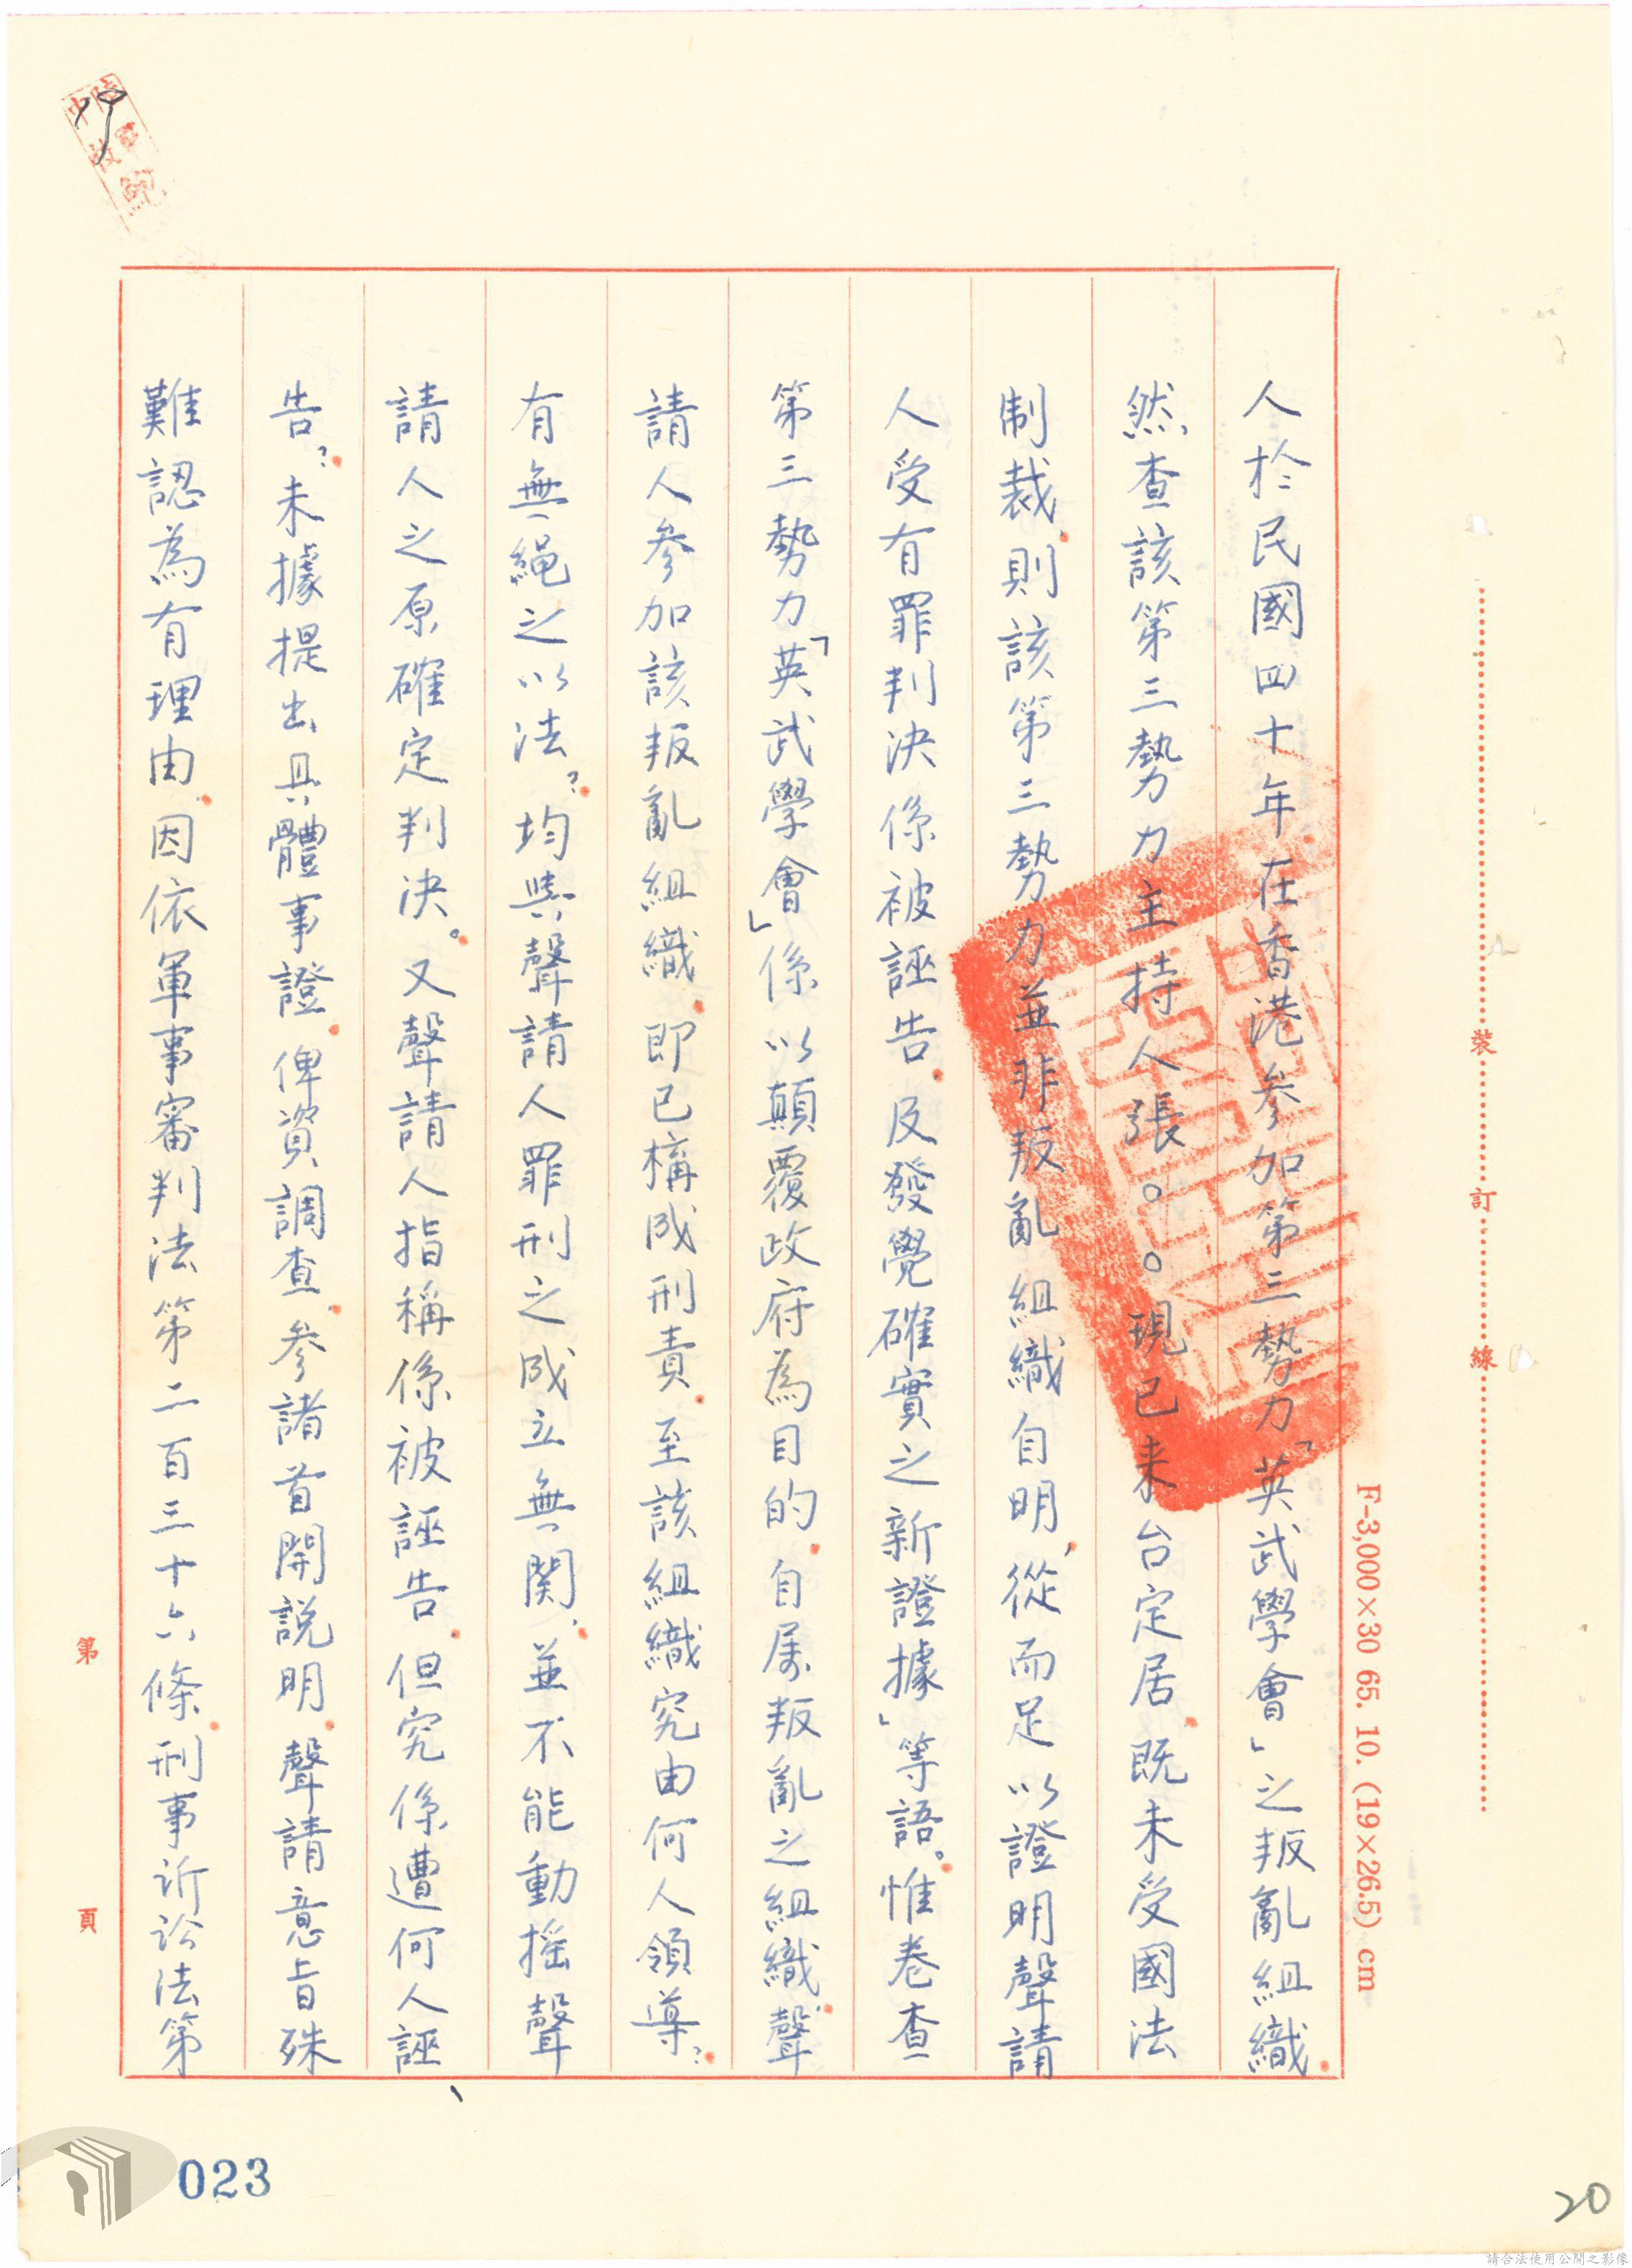 人於民國四十年在香港參加第三勢力「英武學會」之叛亂組織，
然查該第三勢力主持人張○○現已来台定居，既未受國法
制裁，則該第三勢力並非叛亂組織自明，從而足以證明聲請
人受有罪判決係被誣告，及發覺確實之新證據」等語。惟卷查
第三勢力「英武學會」係以顛覆政府為目的，自属叛亂之組織，聲
請人參加該叛亂組織，即已構成刑責，至該組織究由何人領導？
有無繩之以法？均與聲請人罪刑之成立無関，並不能動搖聲
請人之原確定判決。又聲請人指稱係被誣告，但究係遭何人誣
告？未據提出具體事證，俾資調查，參諸首開説明，聲請意旨殊
難認為有理由，因依軍事審判法第二百三十六條，刑事訴訟法第
裝
訂
線
F-3,000×30 65. 10. (19×26.5) cm
第 頁
19
023
20
請合法使用公開之影像